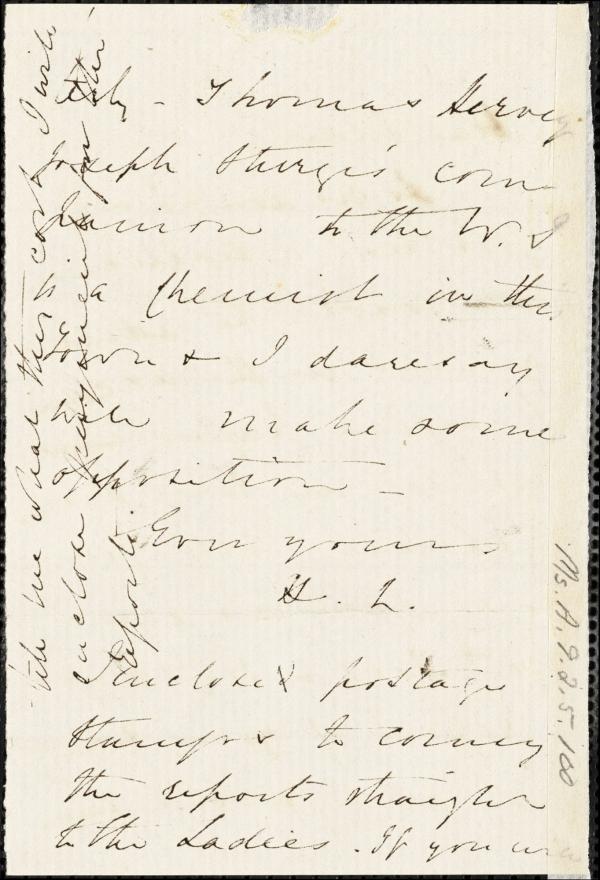 Thomas Harvey
Joseph Sturge's com
panion to the W. I
is a Chemist in this
Town & I daresay
will make some
opposition –
Ever yours
L.
I enclose postage
stamps & to convey
the reports straight
to the Ladies. If you will
tell me what this cost I will
enclose
reports
Ms. A. 9. 2. 5. 100